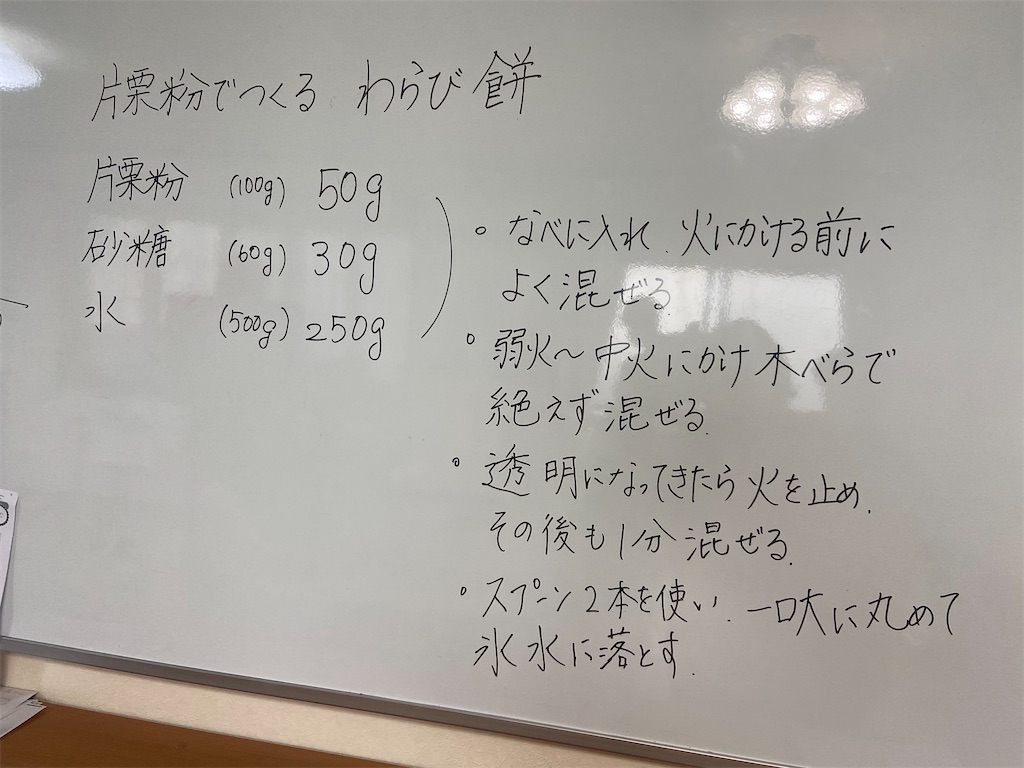 片栗粉でつくる わらび餅
片栗粉 (100g) 50g
砂糖 (60g) 30g
水 (500g) 250g
。なべに入れ、火にかける前に
よく混ぜる
。弱火〜中火にかけ木べらで
絶えず混ぜる
。透明になってきたら火を止め、
その後も1分混ぜる。
。スプーン2本を使い、一口大に丸めて
氷水に落とす。